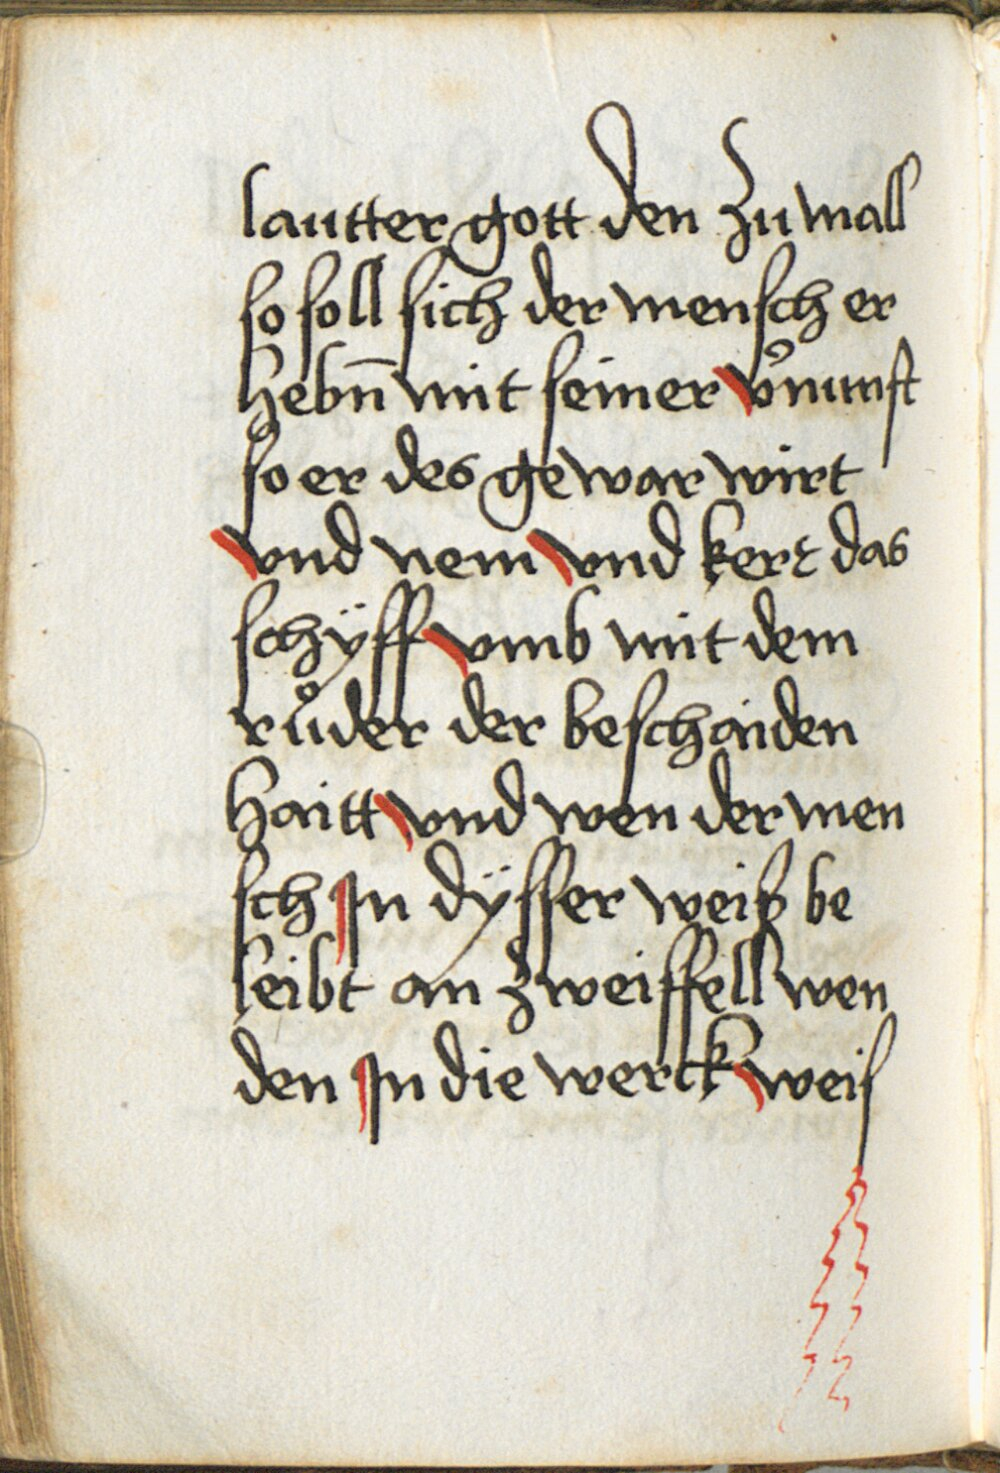 lautter gott den zu mall
so soll sich der mensch er
hebn̄ mit seiner v̉nunft
so er des gewar wirt
vnd nem vnd kert das
schÿff vmb mit dem
růder der beschaiden
haitt vnd wen der men
sch In dÿsser weiß be
leibt an zweiffell wen
den In die werck weis